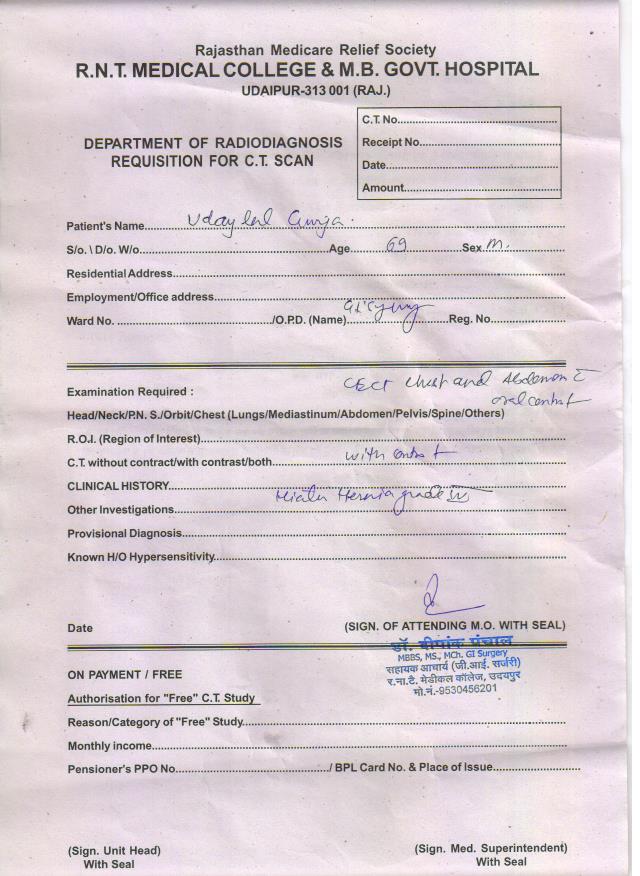 Rajasthan Medicare Relief Society
R.N.T. MEDICAL COLLEGE & M.B. GOVT. HOSPITAL
UDAIPUR-313 001 (RAJ.)
C.T. No.
Receipt No.
Date
Amount
DEPARTMENT OF RADIODIAGNOSIS
REQUISITION FOR C.T. SCAN
Patient's Name Uday lal
S/o. \ D/o. W/o Age 69 Sex M.
Residential Address
Employment/Office address
Ward No. /O.P.D. (Name) Reg. No.
Examination Required : CECT chest and Abdomen c̄
oral contrast
Head/Neck/P.N. S./Orbit/Chest (Lungs/Mediastinum/Abdomen/Pelvis/Spine/Others)
R.O.I. (Region of Interest)
C.T. without contract/with contrast/both with contrast
CLINICAL HISTORY
Hiatus Hernia grade IV
Other Investigations
Provisional Diagnosis
Known H/O Hypersensitivity
Date (SIGN. OF ATTENDING M.O. WITH SEAL)
डॉ. दीपांक पंचाल
MBBS, MS., MCh. GI Surgery
सहायक आचार्य (जी.आई. सर्जरी)
र.ना.टै. मेडीकल कॉलेज, उदयपुर
मो.नं.-9530456201
ON PAYMENT / FREE
Authorisation for "Free" C.T. Study
Reason/Category of "Free" Study
Monthly income
Pensioner's PPO No. / BPL Card No. & Place of Issue
(Sign. Unit Head) (Sign. Med. Superintendent)
With Seal With Seal